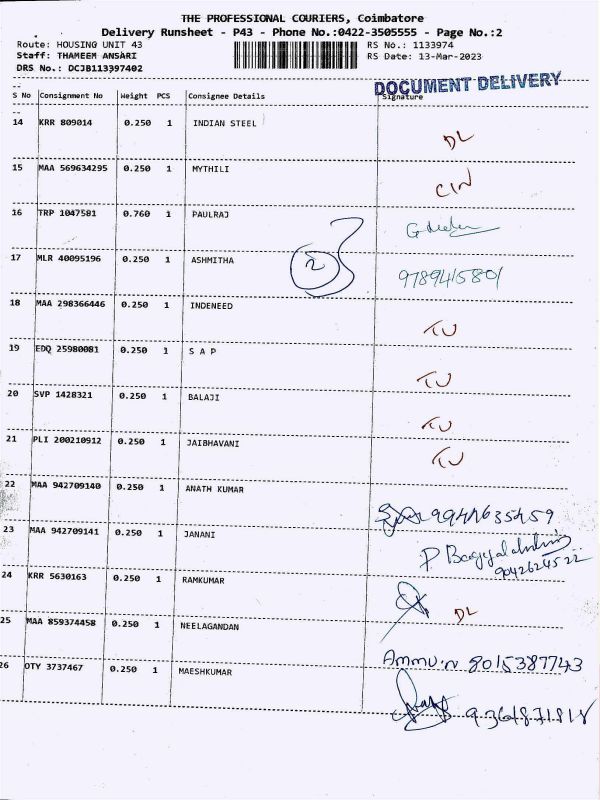 THE PROFESSIONAL COURIERS, Coimbatore
Delivery Runsheet - P43 - Phone No.:0422-3505555 - Page No.:2
Route: HOUSING UNIT 43 RS No.: 1133974
Staff: THAMEEM ANSARI RS Date: 13-Mar-2023
DRS No.: DCJB113397402
DOCUMENT DELIVERY
S No Consignment No Weight PCS Consignee Details Signature
14 KRR 809014 0.250 1 INDIAN STEEL
DL
15 MAA 569634295 0.250 1 MYTHILI
CIN
16 TRP 1047581 0.760 1 PAULRAJ
2
17 MLR 40095196 0.250 1 ASHMITHA
9789415801
18 MAA 298366446 0.250 1 INDENEED
TU
19 EDQ 25980081 0.250 1 S A P
TU
20 SVP 1428321 0.250 1 BALAJI
TU
21 PLI 200210912 0.250 1 JAIBHAVANI
TU
22 MAA 942709140 0.250 1 ANATH KUMAR
23 MAA 942709141 0.250 1 JANANI
9042624522
24 KRR 5630163 0.250 1 RAMKUMAR
DL
25 MAA 859374458 0.250 1 NEELAGANDAN
Ammu.n 8015387743
26 OTY 3737467 0.250 1 MAESHKUMAR